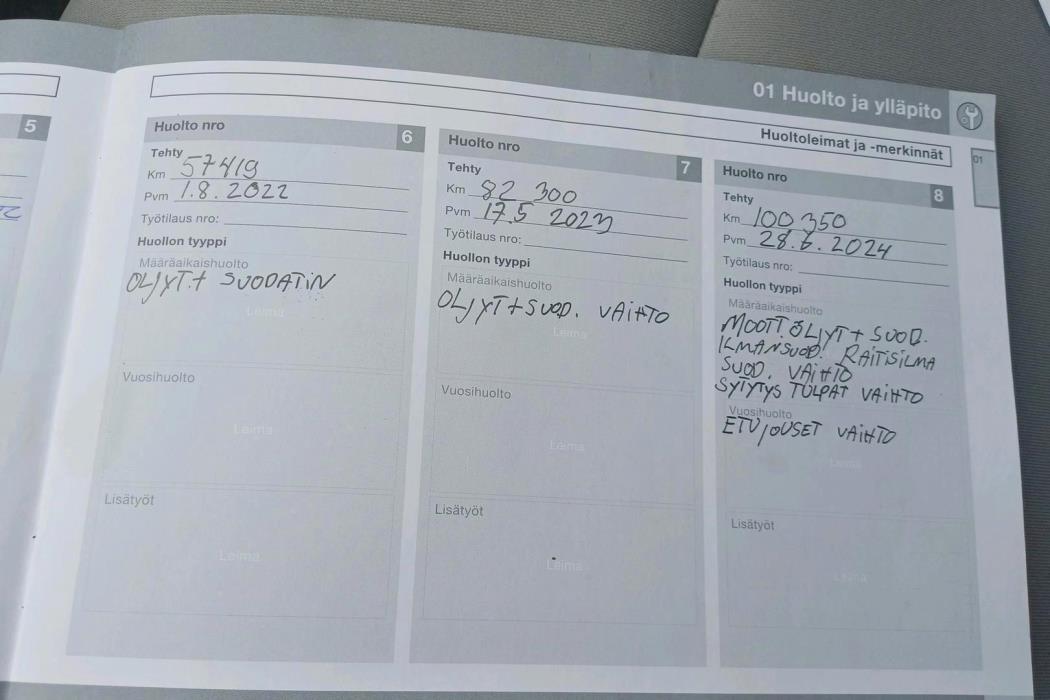 01 Huolto ja ylläpito
Huoltoleimat ja -merkinnät
01
5
Huolto nro 6
Tehty
Km 57419
Pvm 1.8.2022
Työtilaus nro:
Huollon tyyppi
Määräaikaishuolto
ÖLJYT.+ SUODATIN
Leima
Vuosihuolto
Leima
Lisätyöt
Leima
Huolto nro 7
Tehty
Km 82 300
Pvm 17.5 2023
Työtilaus nro:
Huollon tyyppi
Määräaikaishuolto
ÖLJYT+SUOD. VAIHTO
Leima
Vuosihuolto
Leima
Lisätyöt
Leima
Huolto nro 8
Tehty
Km 100 350
Pvm 28.6.2024
Työtilaus nro:
Huollon tyyppi
Määräaikaishuolto
MOOTT.ÖLJYT+ SUOD.
ILMANSUOD. RAITISILMA
SUOD. VAIHTO
SYTYTYS TULPAT VAIHTO
Vuosihuolto
ETUJOUSET VAIHTO
Leima
Lisätyöt
Leima